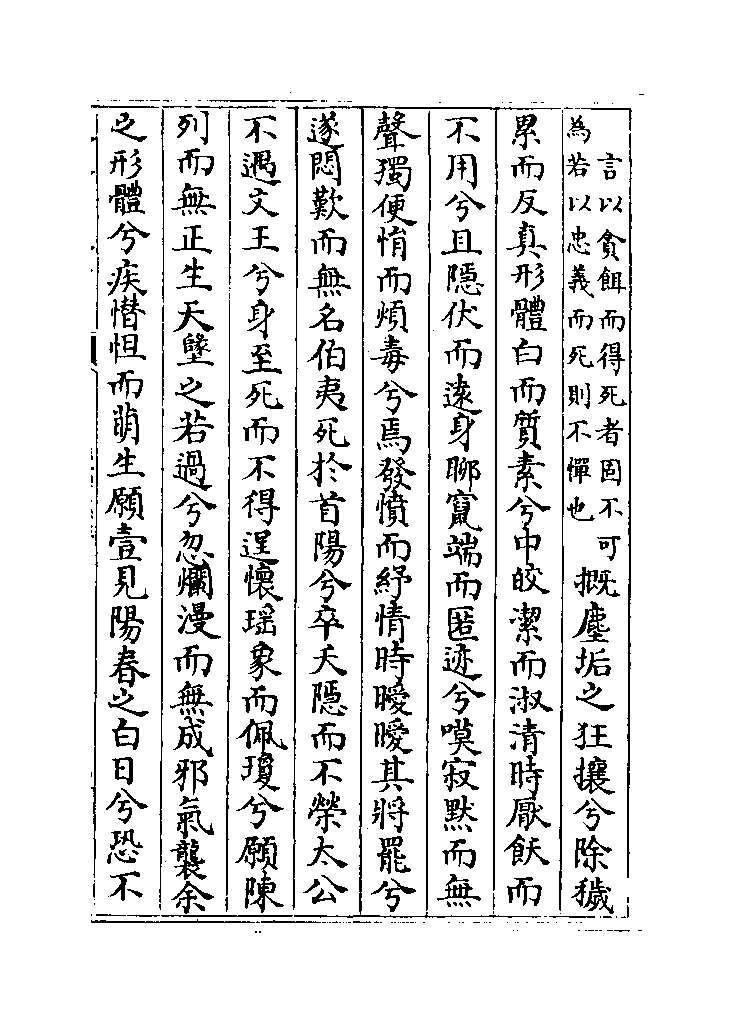 言以貪餌而得死者固不可
為若以忠義而死則不憚也
概塵垢之狂攘兮除穢
累而反真形體白而質素兮中皎潔而淑清時厭飫而
不用兮且隱伏而逺身聊竄端而匿迹兮嗼寂黙而無
聲獨便悁而煩毒兮焉發憤而紓情時曖曖其將罷兮
遂悶歎而無名伯夷死於首陽兮卒夭隱而不榮太公
不遇文王兮身至死而不得逞懷瑶象而佩瓊兮願陳
列而無正生天墬之若過兮忽爛漫而無成邪氣襲余
之形體兮疾憯怛而萌生願壹見陽春之白日兮恐不